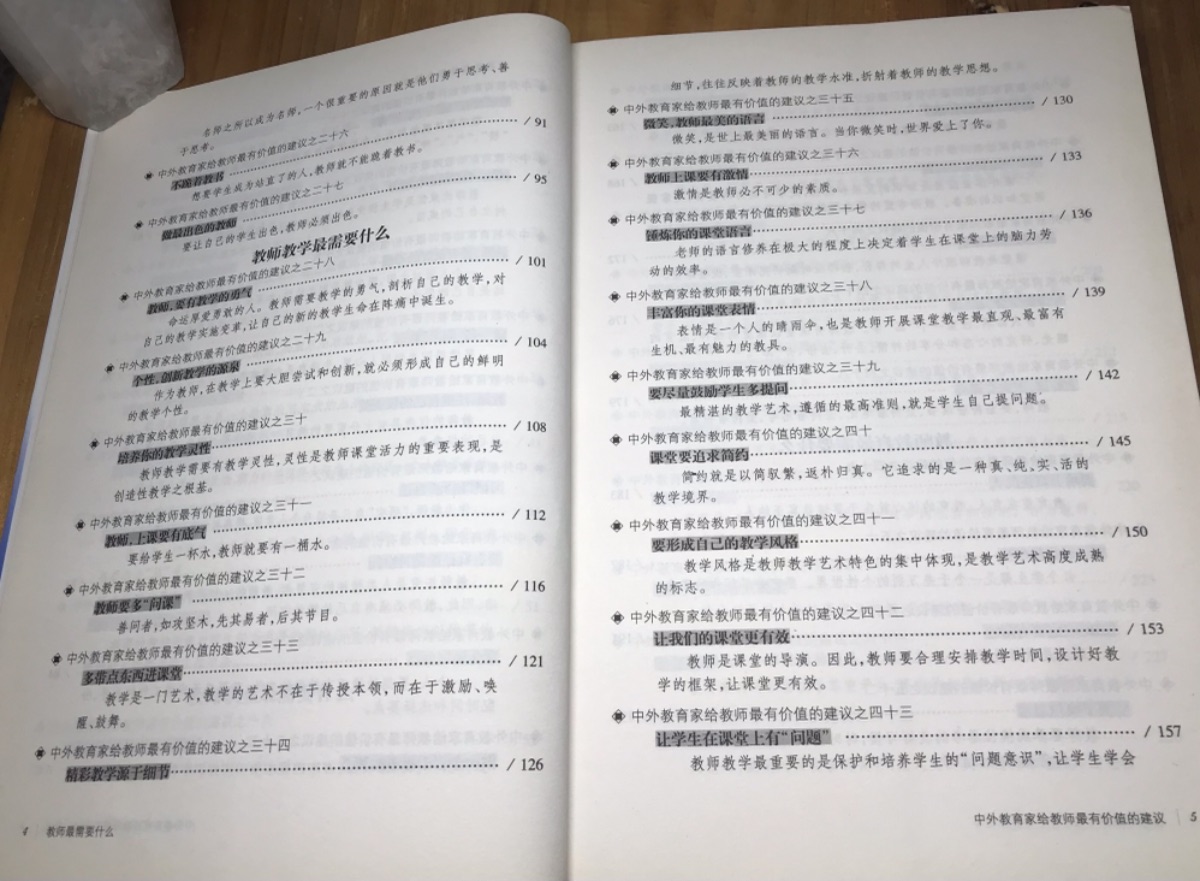 名师之所以成为名师，一个很重要的原因就是他们勇于思考、善
于思考。
中外教育家给教师最有价值的建议之二十六
不跪着教书 / 91
想要学生成为站直了的人，教师就不能跪着教书。
中外教育家给教师最有价值的建议之二十七
做最出色的教师 / 95
要让自己的学生出色，教师必须出色。
教师教学最需要什么
中外教育家给教师最有价值的建议之二十八
教师，要有教学的勇气 / 101
命运厚爱勇敢的人。教师需要教学的勇气，剖析自己的教学，对
自己的教学实施变革，让自己的新的教学生命在阵痛中诞生。
中外教育家给教师最有价值的建议之二十九
个性，创新教学的源泉 / 104
作为教师，在教学上要大胆尝试和创新，就必须形成自己的鲜明
的教学个性。
中外教育家给教师最有价值的建议之三十
培养你的教学灵性 / 108
教师教学需要有教学灵性，灵性是教师课堂活力的重要表现，是
创造性教学之根基。
中外教育家给教师最有价值的建议之三十一
教师，上课要有底气 / 112
要给学生一杯水，教师就要有一桶水。
中外教育家给教师最有价值的建议之三十二
教师要多“问课” / 116
善问者，如攻坚木，先其易者，后其节目。
中外教育家给教师最有价值的建议之三十三
多带点东西进课堂 / 121
教学是一门艺术，教学的艺术不在于传授本领，而在于激励、唤
醒、鼓舞。
中外教育家给教师最有价值的建议之三十四
精彩教学源于细节 / 126
4 教师最需要什么
细节，往往反映着教师的教学水准，折射着教师的教学思想。
中外教育家给教师最有价值的建议之三十五
微笑，教师最美的语言 / 130
微笑，是世上最美丽的语言。当你微笑时，世界爱上了你。
中外教育家给教师最有价值的建议之三十六
教师上课要有激情 / 133
激情是教师必不可少的素质。
中外教育家给教师最有价值的建议之三十七
锤炼你的课堂语言 / 136
老师的语言修养在极大的程度上决定着学生在课堂上的脑力劳
动的效率。
中外教育家给教师最有价值的建议之三十八
丰富你的课堂表情 / 139
表情是一个人的晴雨伞，也是教师开展课堂教学最直观、最富有
生机、最有魅力的教具。
中外教育家给教师最有价值的建议之三十九
要尽量鼓励学生多提问 / 142
最精湛的教学艺术，遵循的最高准则，就是学生自己提问题。
中外教育家给教师最有价值的建议之四十
课堂要追求简约 / 145
简约就是以简驭繁，返朴归真。它追求的是一种真、纯、实、活的
教学境界。
中外教育家给教师最有价值的建议之四十一
要形成自己的教学风格 / 150
教学风格是教师教学艺术特色的集中体现，是教学艺术高度成熟
的标志。
中外教育家给教师最有价值的建议之四十二
让我们的课堂更有效 / 153
教师是课堂的导演。因此，教师要合理安排教学时间，设计好教
学的框架，让课堂更有效。
中外教育家给教师最有价值的建议之四十三
让学生在课堂上有“问题” / 157
教师教学最重要的是保护和培养学生的“问题意识”，让学生学会
中外教育家给教师最有价值的建议 5